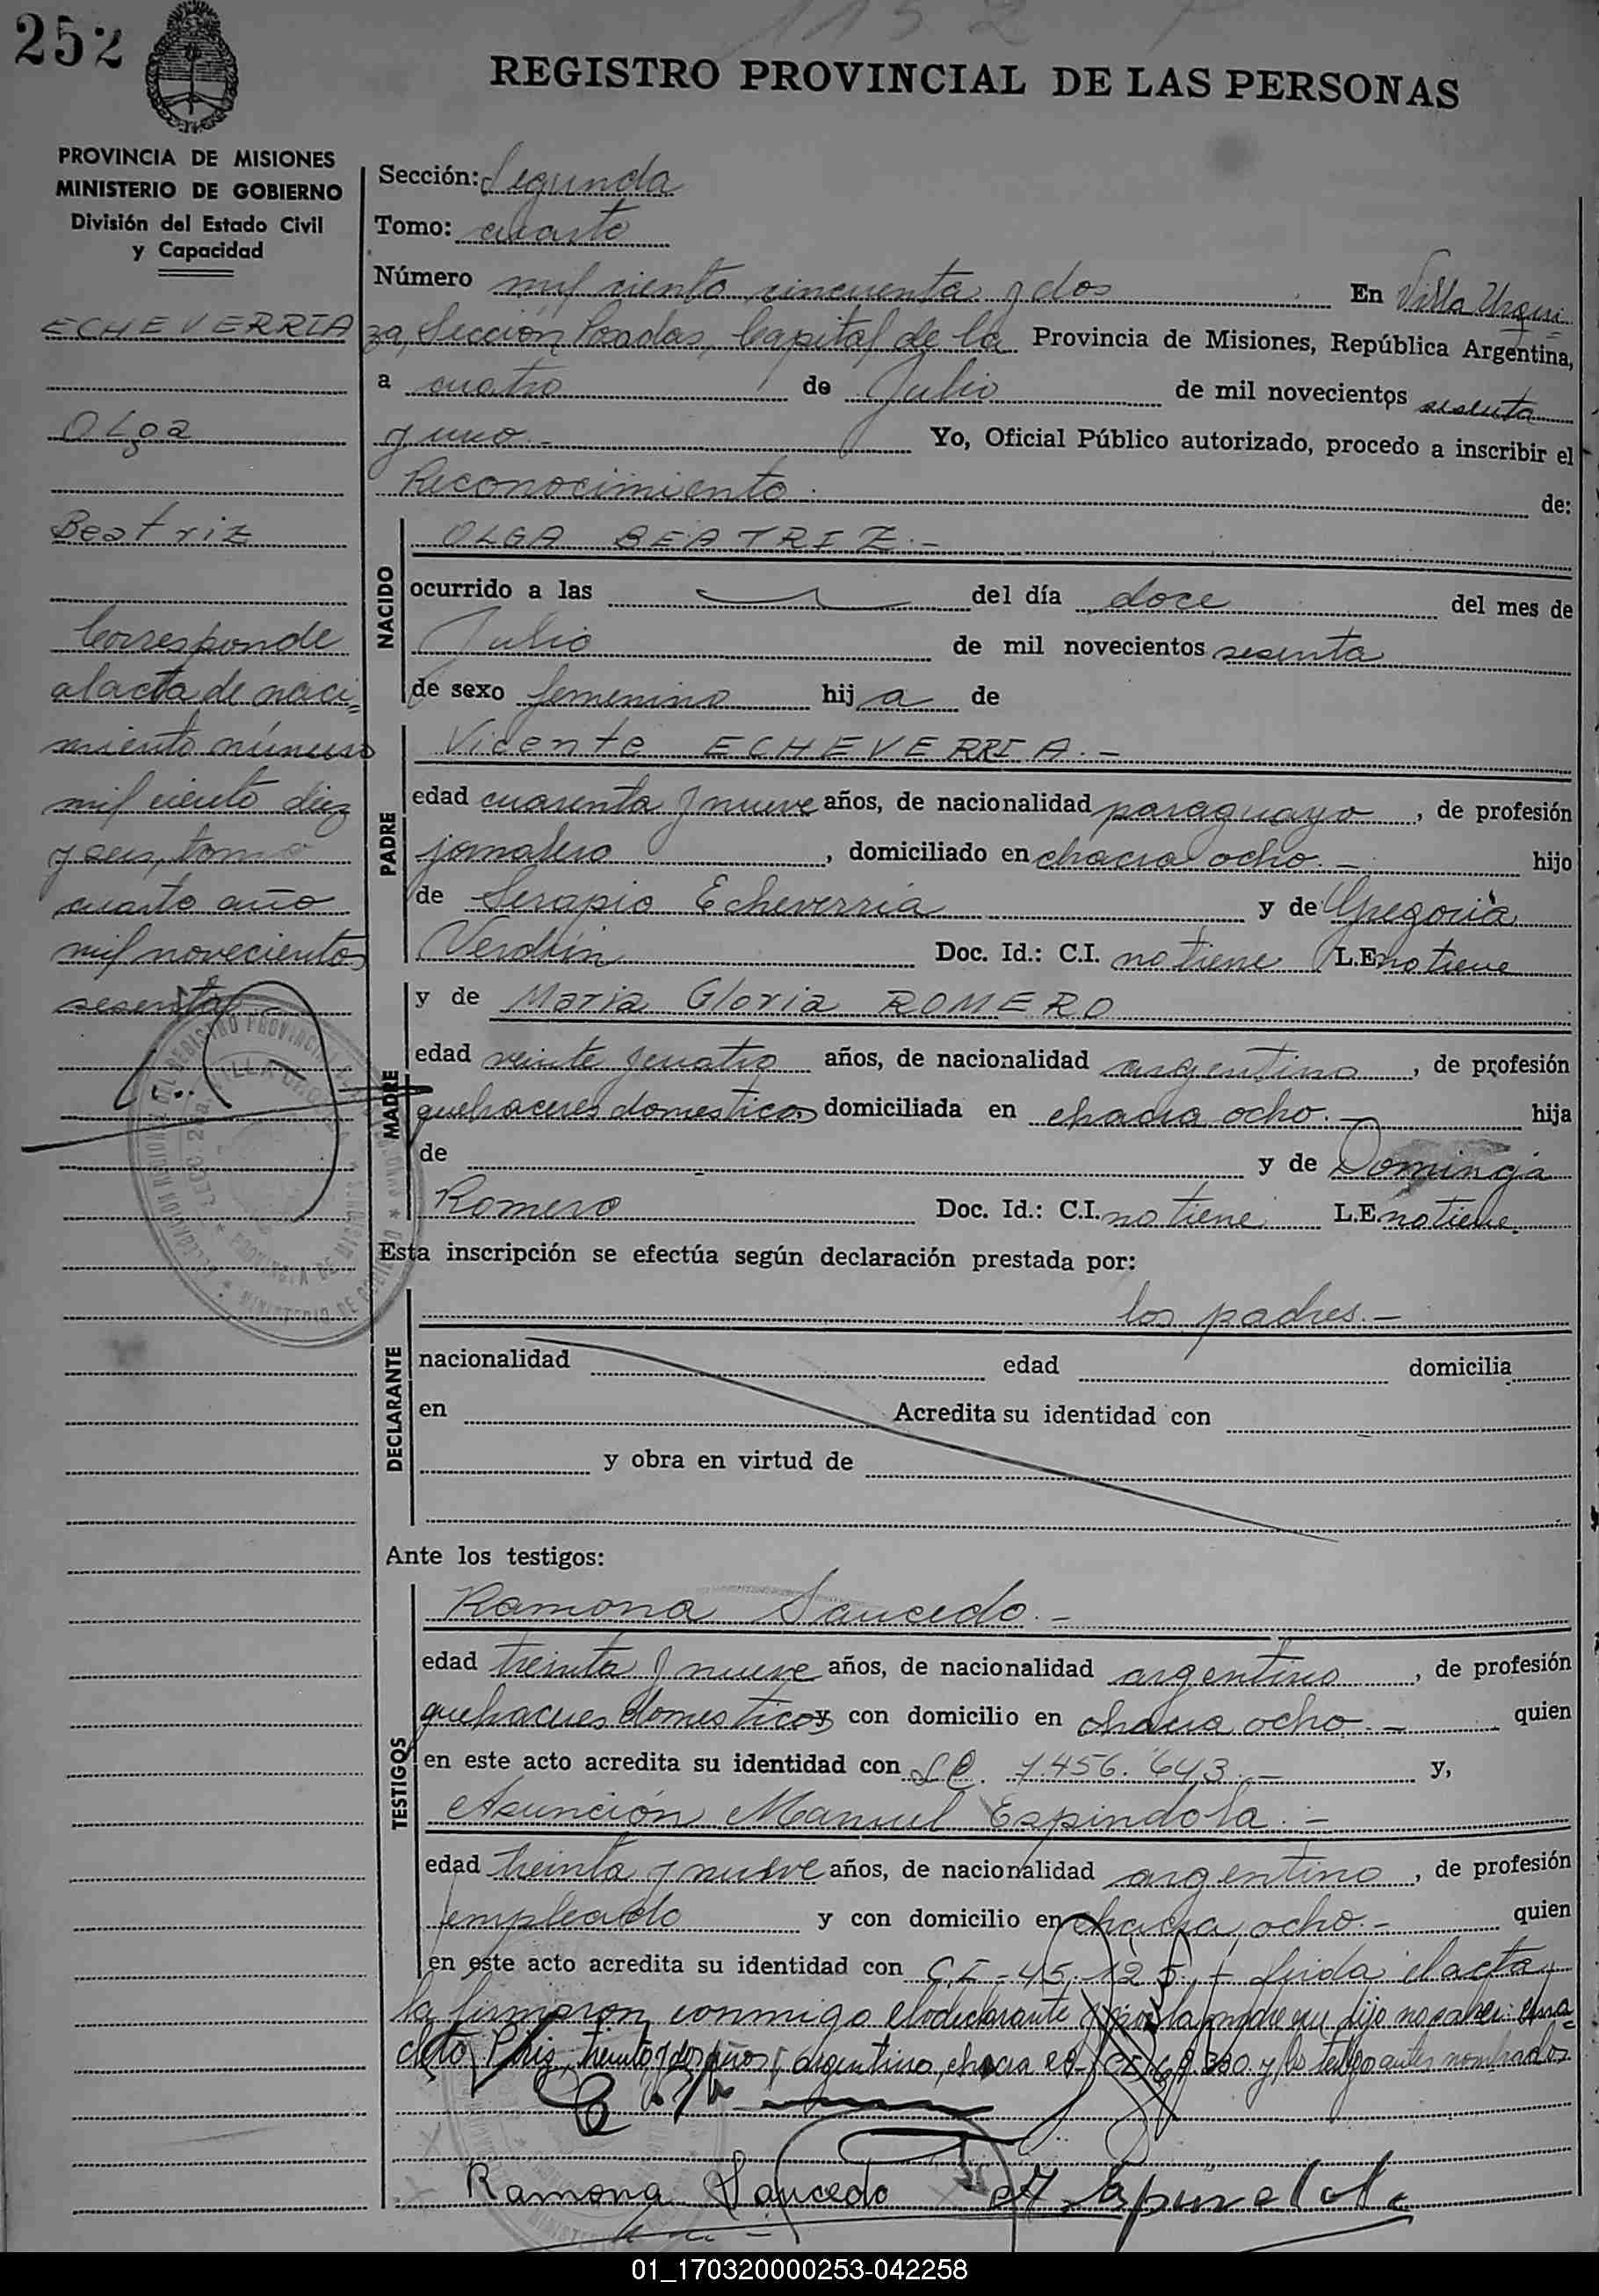 1152
252
REGISTRO PROVINCIAL DE LAS PERSONAS
PROVINCIA DE MISIONES
MINISTERIO DE GOBIERNO
División del Estado Civil
y Capacidad
ECHEVERRIA
Olga
Beatriz
Corresponde
al acta de naci=
miento número
mil ciento diez
y seis, tomo
cuarto año
mil novecientos
sesenta
Sección: Segunda
Tomo: cuarto
Número mil ciento cincuenta y dos En Villa Urqui=
za, Sección Posadas, Capital de la Provincia de Misiones, República Argentina,
a cuatro de Julio de mil novecientos sesenta
y uno.- Yo, Oficial Público autorizado, procedo a inscribir el
Reconocimiento de:
NACIDO
OLGA BEATRIZ.-
ocurrido a las del día doce del mes de
Julio de mil novecientos sesenta
de sexo femenino hija de
PADRE
Vicente ECHEVERRIA.-
edad cuarenta y nueve años, de nacionalidad paraguayo, de profesión
jornalero, domiciliado en chacra ocho.- hijo
de Serapio Echeverria y de Gregoria
Verdún Doc. Id.: C.I. no tiene L.E no tiene
MADRE
y de Maria Gloria ROMERO
edad veinte y cuatro años, de nacionalidad argentina, de profesión
quehaceres domesticos domiciliada en chacra ocho.- hija
de y de Dominga
Romero Doc. Id.: C.I. no tiene L.E no tiene.
Esta inscripción se efectúa según declaración prestada por:
DECLARANTE
los padres.-
nacionalidad edad domicilia
en Acredita su identidad con
y obra en virtud de
Ante los testigos:
TESTIGOS
Ramona Saucedo.-
edad treinta y nueve años, de nacionalidad argentino, de profesión
quehaceres domesticos y con domicilio en chacra ocho.- quien
en este acto acredita su identidad con L.C. 1.456.643.- y,
Asunción Manuel Espindola.-
edad treinta y nueve años, de nacionalidad argentino, de profesión
empleado y con domicilio en chacra ocho.- quien
en este acto acredita su identidad con C.I.-45.125.- Leida el acta
la firmaron conmigo el declarante y por la madre que dijo no saber
treinta y dos años, argentino, chacra y los testigos antes nombrados
Ramona Saucedo
01_170320000253-042258